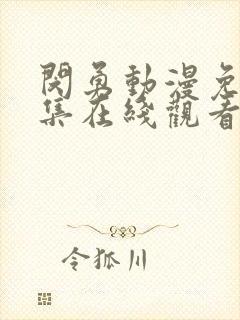 閃勇動漫免
集在綫觀看
令狐川